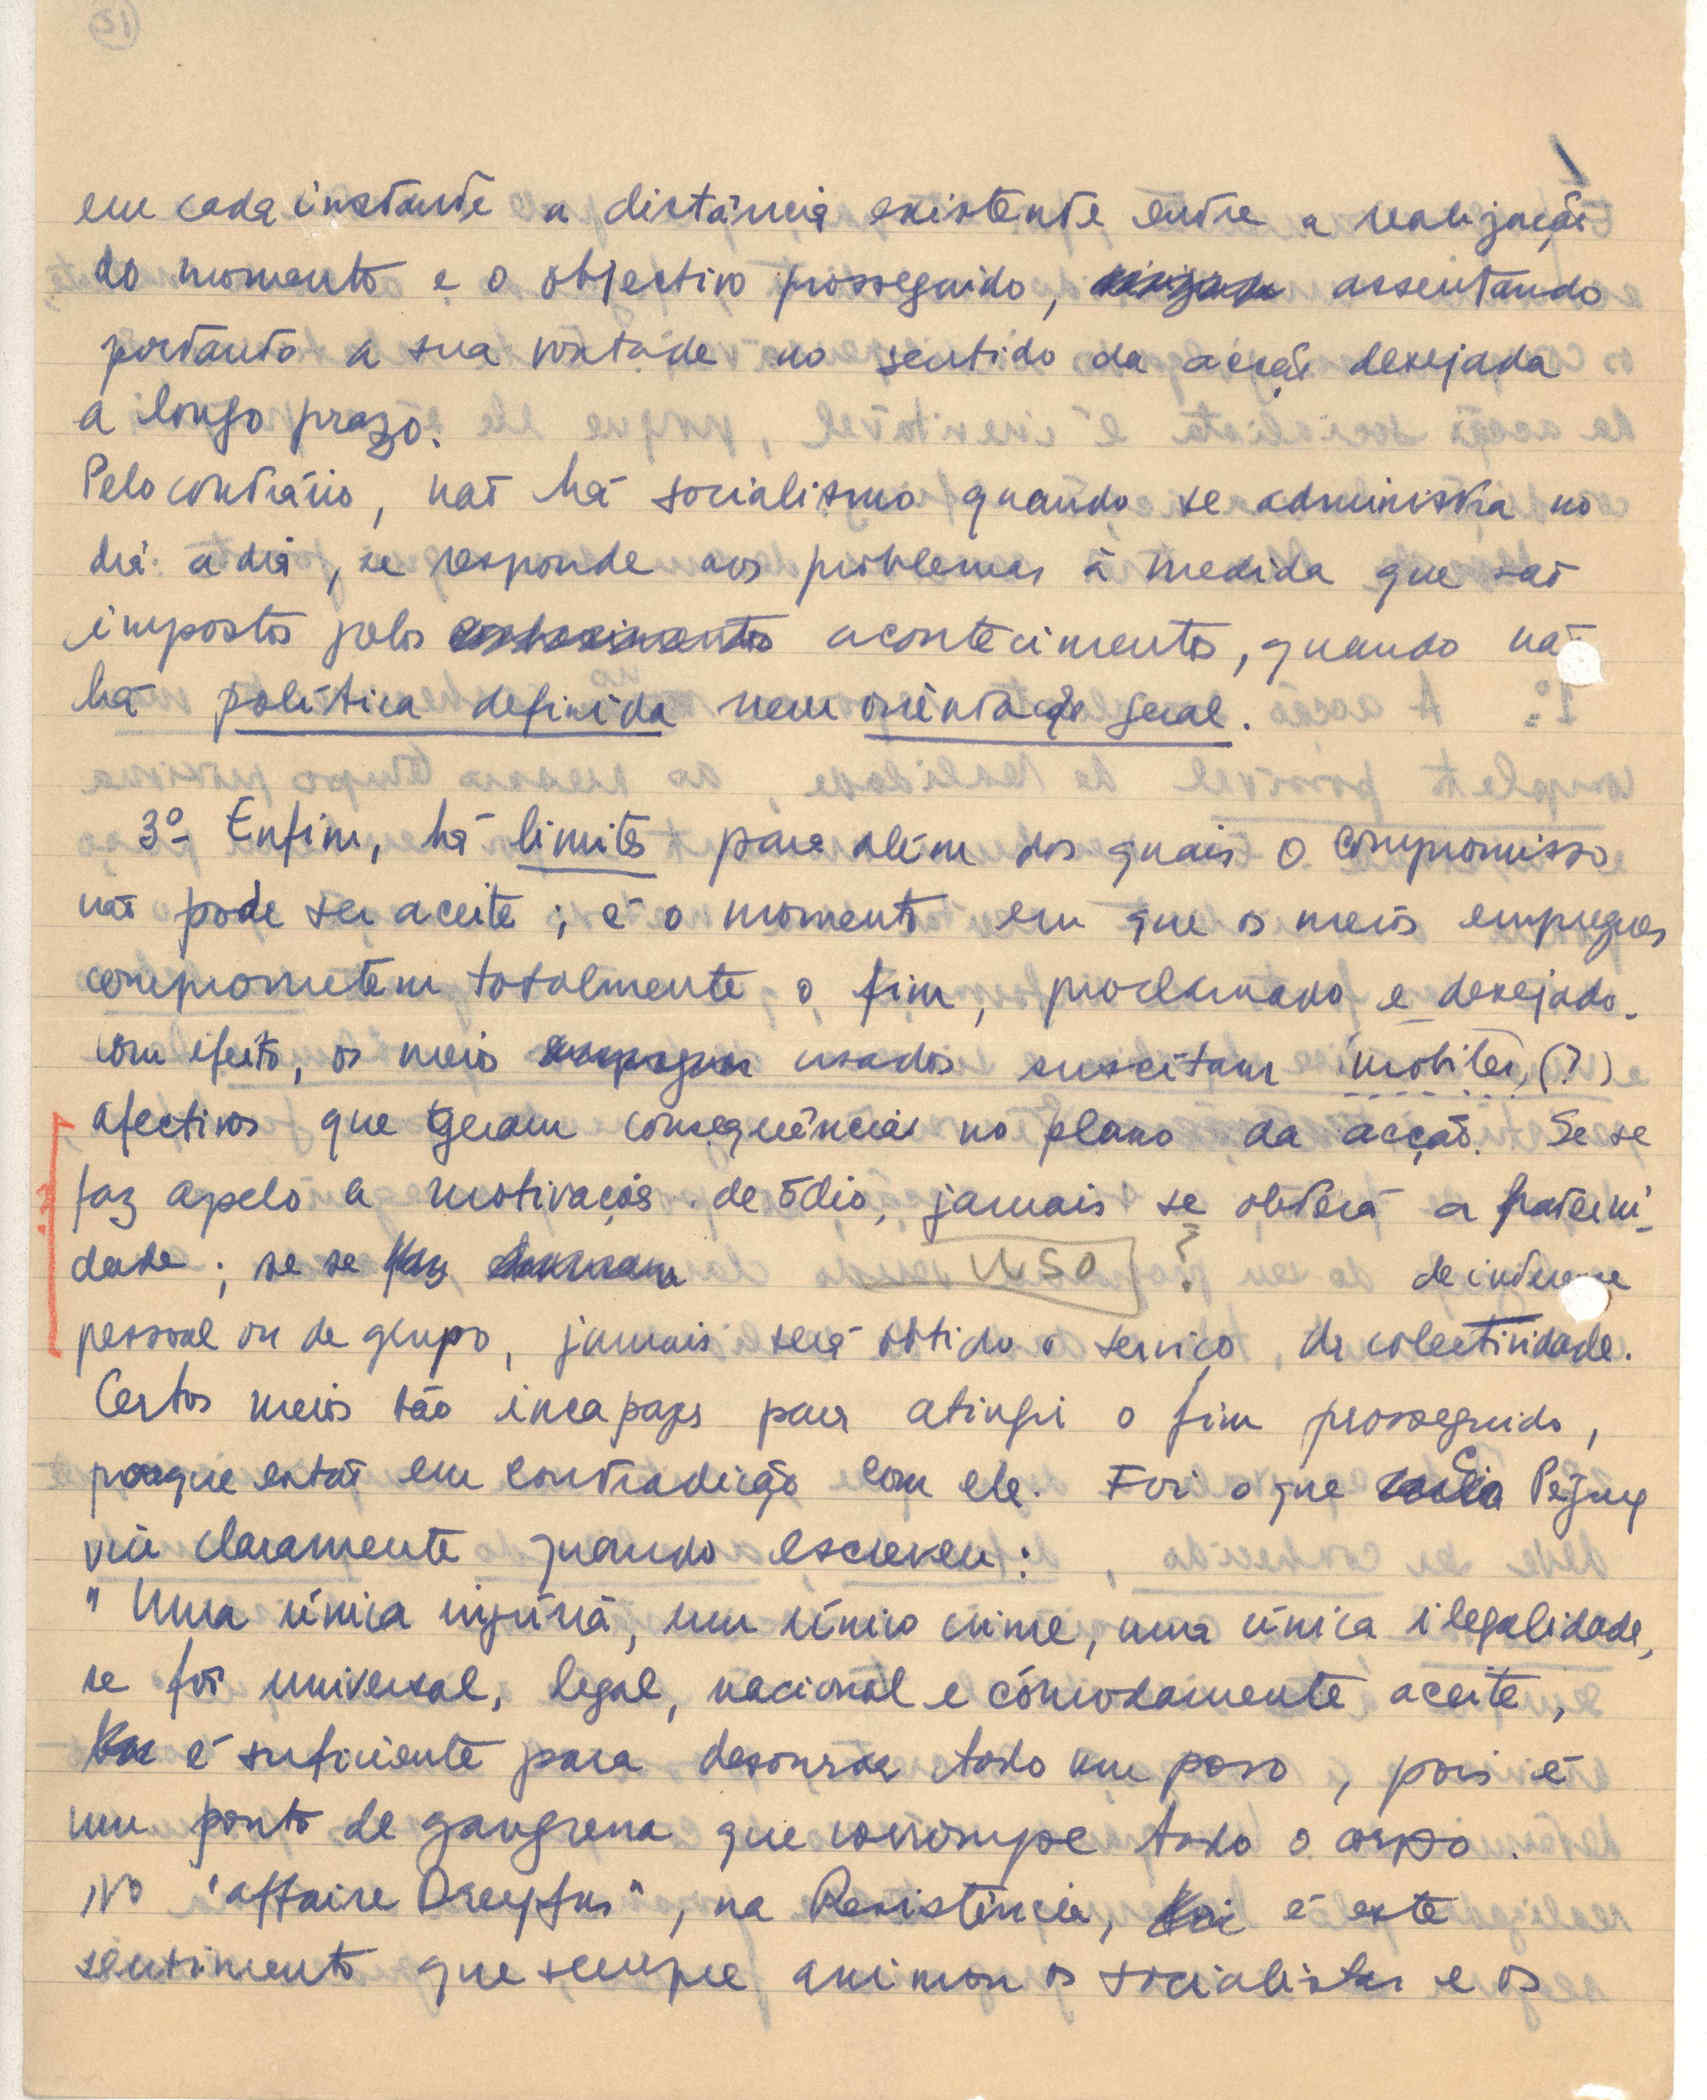 em cada instante a distância existente entre a realização
do momento e o objectivo prosseguido, assentando
portanto a sua vontade no sentido da acção desejada
a longo prazo.
Pelo contrário, não há socialismo quando se administra no
dia a dia, se responde aos problemas à medida que são
impostos pelos acontecimentos, quando não
há política definida nem orientação geral.
3º- Enfim, há limites para além dos quais o compromisso
não pode ser aceite; é o momento em que os meios empregues
comprometem totalmente o fim, proclamado e desejado.
Com efeito, os meios usados suscitam mobiles, (?)
afectivos que geram consequências no plano da acção. Se se
faz apelo a motivações de ódio, jamais se obterá a fraterni-
dade; se se faz uso ? de interesse
pessoal ou de grupo, jamais será obtido o serviço da colectividade.
Certos meios são incapazes para atingir o fim prosseguido,
porque estão em contradição com ele. Foi o que Péguy
viu claramente quando escreveu:
"Uma única injúria, um único crime, uma única ilegalidade,
se for universal, legal, nacional e cómodamente aceite,
é suficiente para desonrar todo um povo, pois é
um ponto de gangrena que corrompe todo o corpo.
No "affaire Dreyfus", na Resistência, é este
sentimento que sempre animou os socialistas e os